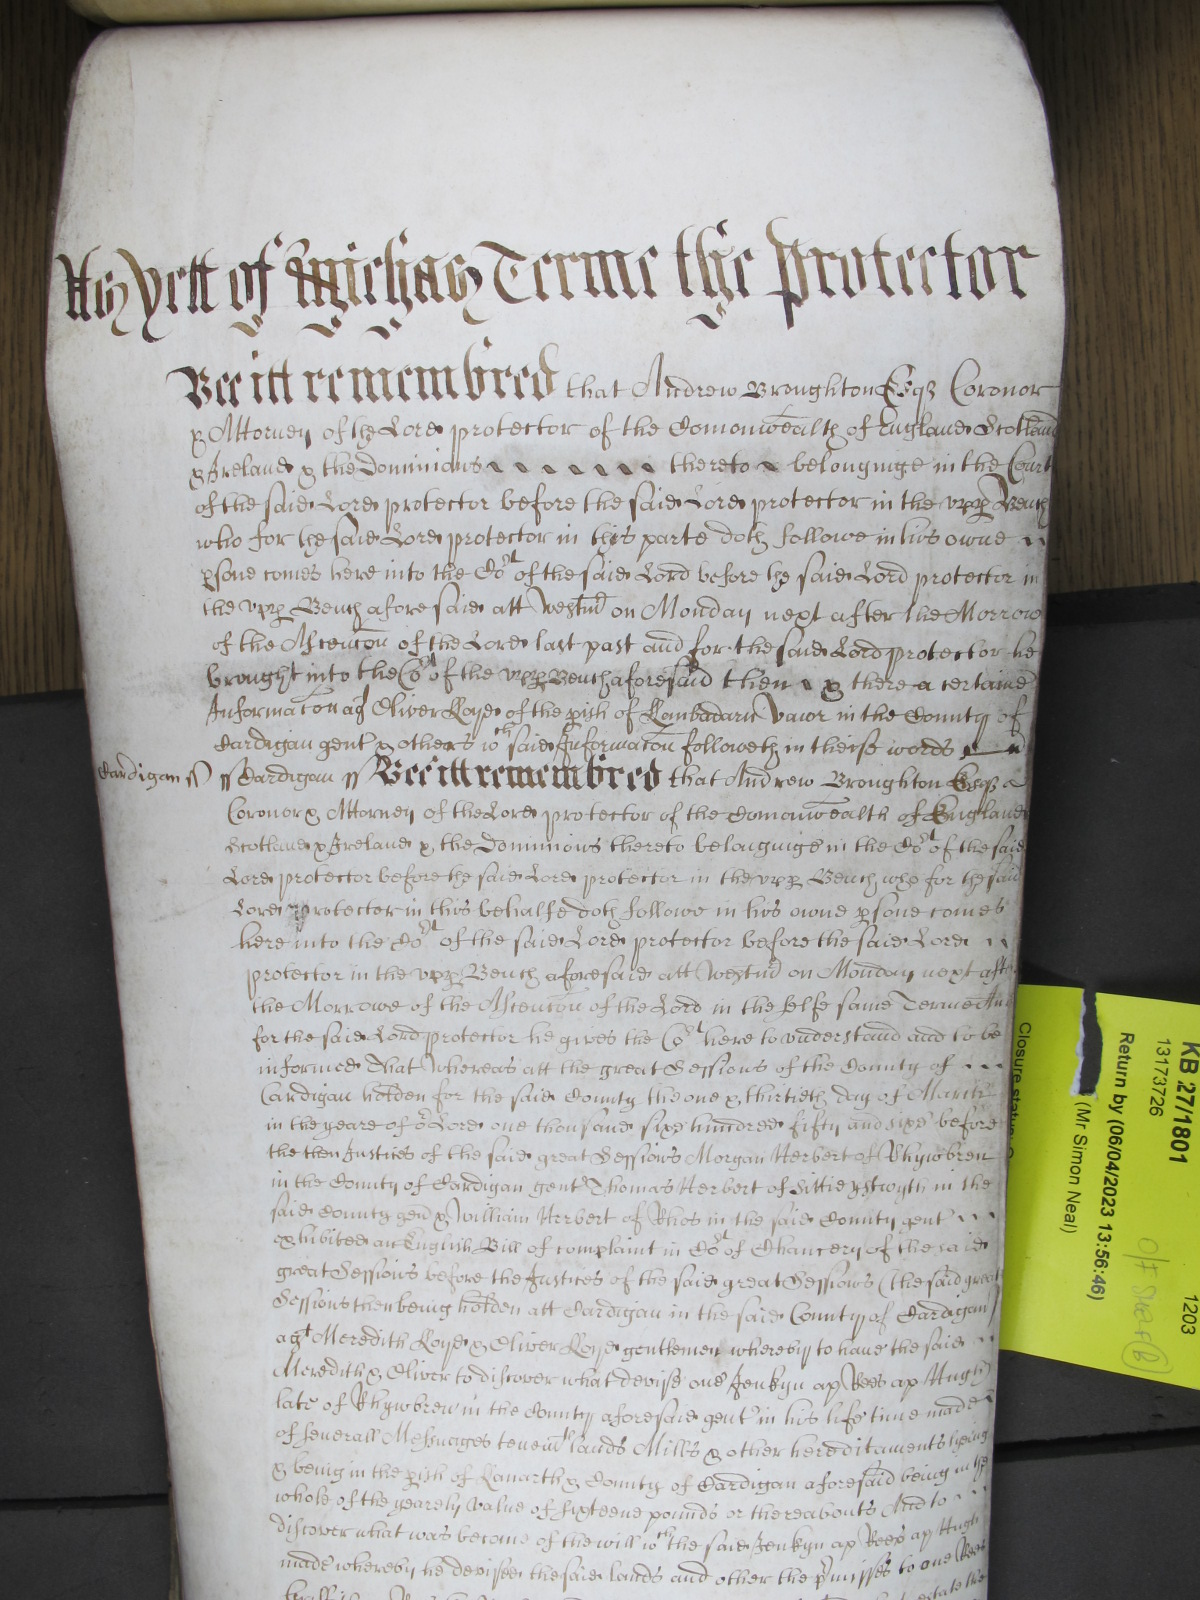 As yett of Michas Terme the Protector
Bee itt remembred that Andrew Broughton Esqz Coronor
& Attorney of the Lord protector of the Comonwealth of England Scotland
& Ireland & the Dominions thereto belonginge in the Court
of the said Lord protector before the said Lord protector in the vpp Bench
who for the said Lord protector in this parte doth followe in his owne
pson comes here into the Cot of the said Lord before the said Lord protector in
the vpp Bench aforesaid att Westmr on Monday next after the Morrow
of the Ascencon of the Lord last past and for the said Lord protector he
brought into the Cot of the vpp Bench aforesaid then & there a certaine
Informacon agt Oliver Loyd of the pish of Lanbadarn Vawr in the County of
Cardigan gent & others wch said Informacon followeth in theise words
Cardigan ss ss Cardigan ss Bee itt remembred that Andrew Broughton Esqz
Coronor & Attorney of the Lord protector of the Comonwealth of England
Scotland & Ireland & the Dominions thereto belonginge in the Cot of the said
Lord protector before the said Lord protector in the vpp Bench who for the said
Lord protector in this behalfe doth followe in his owne psone comes
here into the Cot of the said Lord protector before the said Lord
protector in the vpp Bench aforesaid att Westmr on Monday next aft
the Morrowe of the Ascencon of the Lord in the selfe same Terme And
for the said Lord protector he gives the Cot here to vnderstand and to be
informed That whereas att the great Sessions of the County of
Cardigan holden for the said County the one & thirtieth day of March
in the yeare of or Lord one thousand sixe hundred fifty and sixe before
the then Justices of the said great Sessions Morgan Herbert of Rhywbren
in the County of Cardigan gent Thomas Herbert of Sittie ystwyth in the
said County gent & William Herbert of Rhos in the said County gent
exhibited an English Bill of complaint in Cot of Chancery of the said
great Sessions before the Justices of the said great Sessions (the said great
Sessions then being holden att Cardigan in the said County of Cardigan)
agt Meredith Loyd & Oliver Loyd gentlemen whereby to have the said
Meredith & Oliver to discover what devise one Jenkyn ap Rees ap Hugh
late of Rhywbren in the County aforesaid gent in his life time made
of severall Messuages tenemts lands Mills & other hereditaments lyeing
& being in the pish of Lanarth & County of Cardigan aforesaid being in the
whole of the yearely value of sixteene pounds or thereabouts And to
discover what was become of the will wch the said Jenkyn ap Rees ap Hugh
made whereby he devised the said lands and other the pmisses to one Rees
KB 27/1801
13173726
1203
Return by (06/04/2023 13:56:46)
(Mr Simon Neal)
Closure status